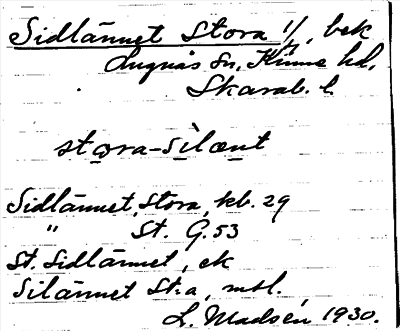 Sidlännet Stora 1/1, bek
Lugnås Sn, Kinne hd,
Skarab. l.
stora-sìlænt
Sidlännet, Stora, kb. 29
" St. G. 53
St. Sidlännet, ek
Silännet Sta, mtl.
L. Madsén, 1930.